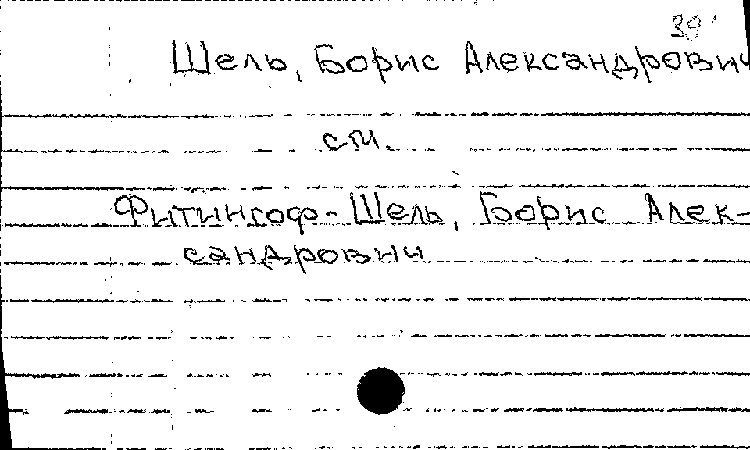 39
Шель, Борис Александрович
см.
Фитингоф-Шель, Борис Алек-
сандрович